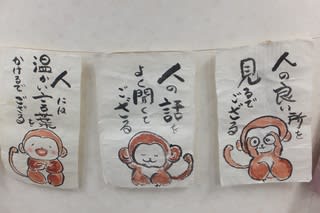 人の良い所を
見るで
ござる
人の話を
よく聞くで
ござる
人には
温かい言葉を
かけるでござる